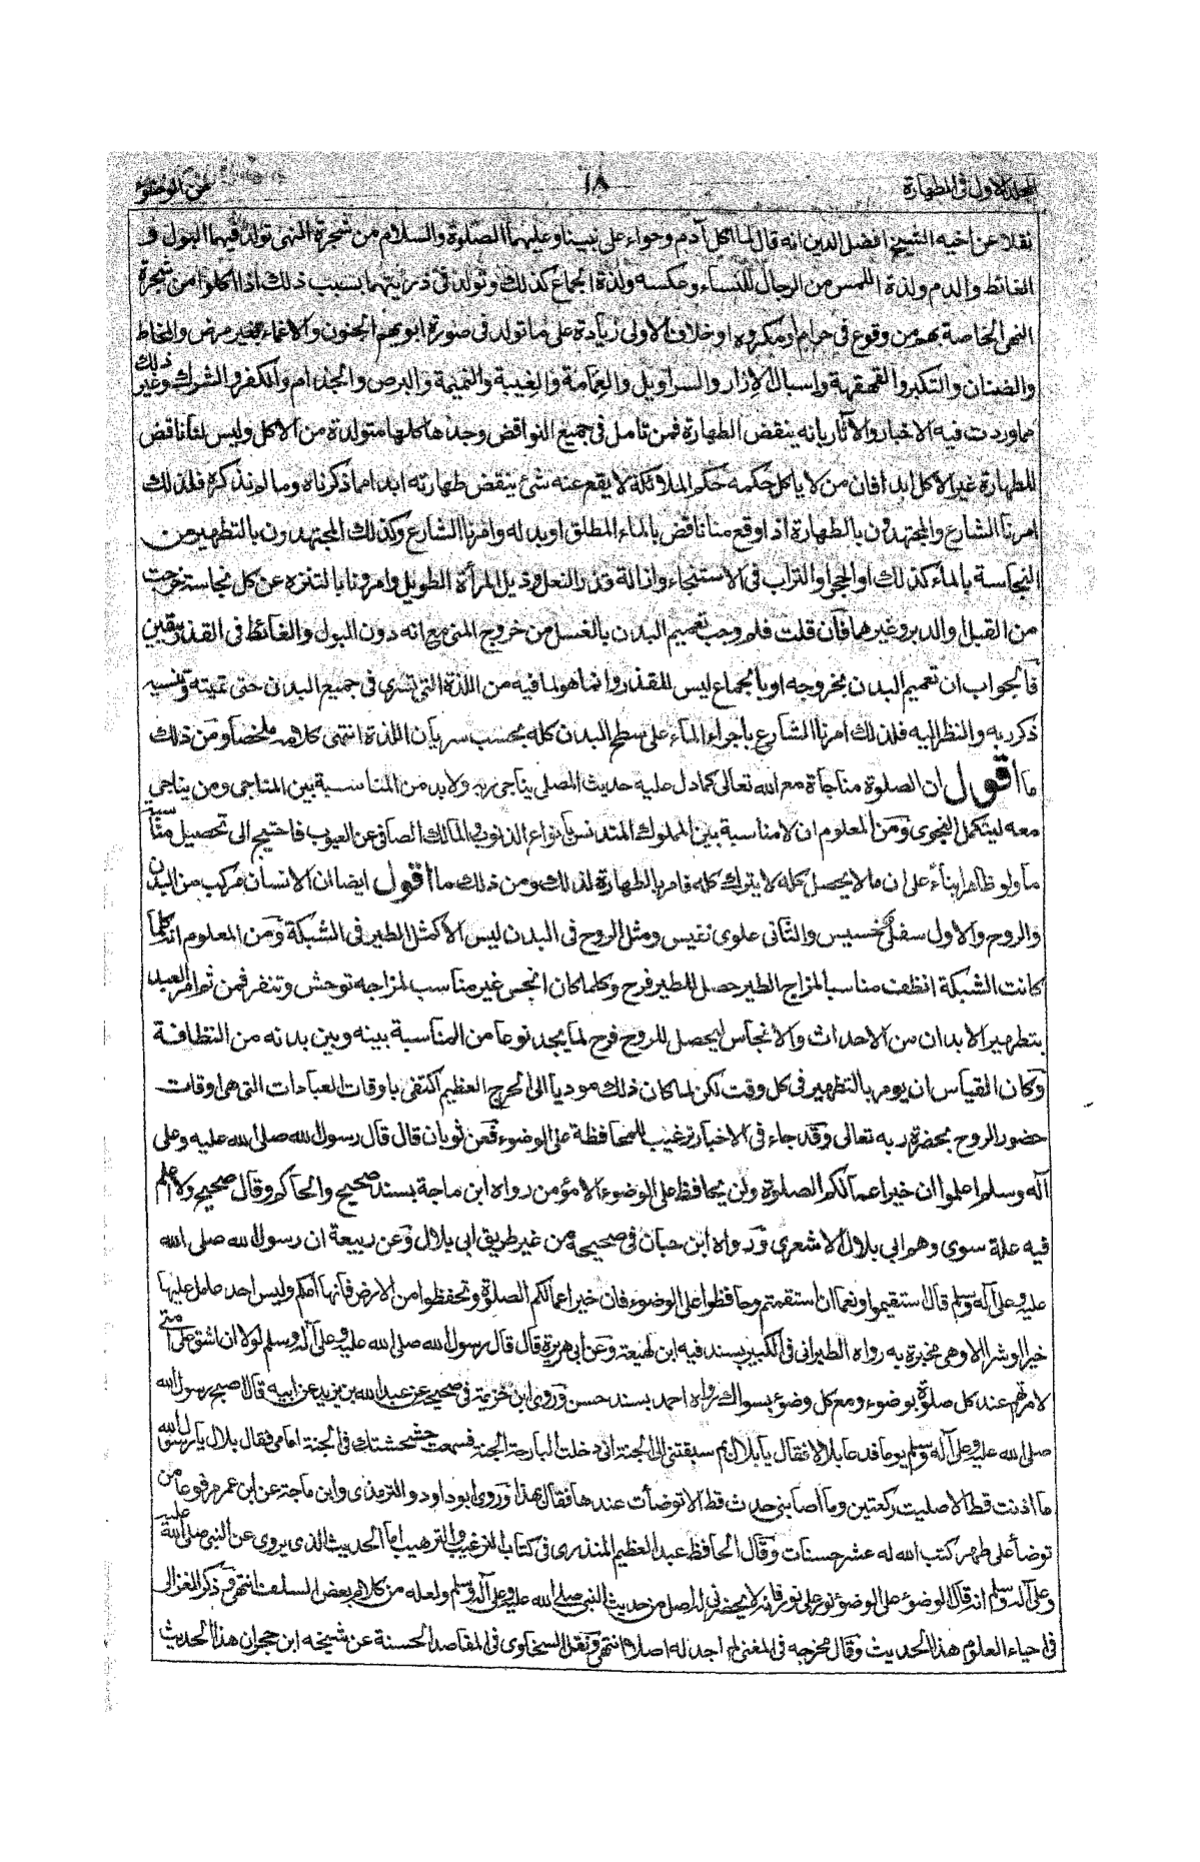 المجلد الاول فى الطهارة
٦٨
نقلا عن اخيه الشيخ افضل الدين انه قال لما اكل آدم وحواء على نبينا وعليهما الصلوة والسلام من شجرة النهى تولد فيهما البول و
الغائط والدم ولذة اللمس من الرجال للنساء وعكسه ولذة الجماع كذلك وتولد فى ذريتهما بسبب ذلك اذا اكلوا من شجرة
النهى الخاصة بهم من وقوع فى حرام او مكروه او خلاف الاولى زيادة على ما تولد فى صورة ابويهم الجنون والاغماء بغير مرض والمخاط
والضنان والتكبر والقهقهة واسبال الازار والسراويل والعمامة والغيبة والنميمة والبرص والجذام والكفر والشرك وغير ذلك
مما وردت فيه الاخبار والآثار بانه ينقض الطهارة فمن تامل فى جميع النواقض وجدها كلها متولدة من الاكل وليس لنا ناقض
للطهارة غير الاكل ابدا فان من لا ياكل حكمه حكم الملائكة لا يقع عنه شئ ينقض طهارته ابدا مما ذكرناه وما لم نذكره فلذلك
امرنا الشارع والمجتهدون بالطهارة اذا وقع منا ناقض بالماء المطلق او بدله وامرنا الشارع وكذلك المجتهدون بالتطهير من
النجاسة بالماء كذلك او الحجر او التراب فى الاستنجاء وازالة قذر النعل وذيل المرأة الطويل وامرونا بالتنزه عن كل نجاسة خرجت
من القبل والدبر وغيرهما فان قلت فلم وجب تعميم البدن بالغسل من خروج المنى مع انه دون البول والغائط فى القذر بيقين
فالجواب ان تعميم البدن بخروجه او بالجماع ليس للقذر وانما هو لما فيه من اللذة التى تسرى فى جميع البدن حتى تميته وتنسيه
ذكر ربه والنظر اليه فلذلك امرنا الشارع باجراء الماء على سطح البدن كله بحسب سريان اللذة انتهى كلامه ملخصا ومن ذلك
ما اقول ان الصلوة مناجاة مع الله تعالى كما دل عليه حديث المصلى يناجى ربه ولا بد من المناسبة بين المناجى ومن يناجى
معه ليتكمل النجوى ومن المعلوم ان لا مناسبة بين المملوك المتدنس بانواع الذنوب والمالك الصافى عن العيوب فاحتيج الى تحصيل مناسبة
ما ولو ظاهرا بناء على ان ما لا يحصل كله لا يترك كله فامر بالطهارة لذلك ومن ذلك ما اقول ايضا ان الانسان مركب من البدن
والروح والاول سفلى خسيس والثانى علوى نفيس ومثل الروح فى البدن ليس الا كمثل الطير فى الشبكة ومن المعلوم انه كلما
كانت الشبكة انظف مناسبا لمزاج الطير حصل للطير فرح وكلما كان انجس غير مناسب لمزاجه توحش وتنفر فمن ثم امر العبد
بتطهير الابدان من الاحداث والانجاس ليحصل للروح فرح لما يجد نوعا من المناسبة بينه وبين بدنه من النظافة
وكان القياس ان يومر بالتطهير فى كل وقت لكن لما كان ذلك موديا الى الحرج العظيم اكتفى باوقات العبادات التى هى اوقات
حضور الروح بحضرة ربه تعالى وقد جاء فى الاخبار ترغيب للمحافظة على الوضوء فعن ثوبان قال قال رسول الله صلى الله عليه وعلى
آله وسلم اعلموا ان خير اعمالكم الصلوة ولن يحافظ على الوضوء الا مؤمن رواه ابن ماجة بسند صحيح والحاكم وقال صحيح ولا اعلم
فيه علة سوى وهم ابى بلال الاشعرى ورواه ابن حبان فى صحيحه من غير طريق ابى بلال وعن ربيعة ان رسول الله صلى الله
عليه وعلى آله وسلم قال استقيموا ونعما ان استقمتم وحافظوا على الوضوء فان خير اعمالكم الصلوة وتحفظوا من الارض فانها امكم وليس احد عامل عليها
خيرا او شرا الا وهى مخبرة به رواه الطبرانى فى الكبير بسند فيه ابن لهيعة وعن ابى هريرة قال قال رسول الله صلى الله عليه وعلى آله وسلم لولا ان اشق على امتى
لامرتهم عند كل صلوة بوضوء ومع كل وضوء بسواك رواه احمد بسند حسن وروى ابن خزيمة فى صحيحه عن عبد الله بن بريدة عن ابيه قال اصبح رسول الله
صلى الله عليه وعلى آله وسلم يوما فدعا بلالا فقال يا بلال بم سبقتنى الى الجنة انى دخلت البارحة الجنة فسمعت خشخشتك فى الجنة امامى فقال بلال يا رسول الله
ما اذنت قط الا صليت ركعتين وما اصابنى حدث قط الا توضأت عندها فقال بهذا وروى ابو داود والترمذى وابن ماجة عن ابن عمر مرفوعا من
توضأ على طهر كتب الله له عشر حسنات وقال الحافظ عبد العظيم المنذرى فى كتاب الترغيب والترهيب اما الحديث الذى يروى عن النبى صلى الله عليه
وعلى آله وسلم انه قال الوضوء على الوضوء نور على نور فانه لا يحضرنى له اصل من حديث النبى صلى الله عليه وعلى آله وسلم ولعله من كلام بعض السلف انتهى وذكر الغزالى
فى احياء العلوم هذا الحديث وقال مخرجه فى المغنى لم اجد له اصلا انتهى ونقل السخاوى فى المقاصد الحسنة عن شيخه ابن حجر ان هذا الحديث